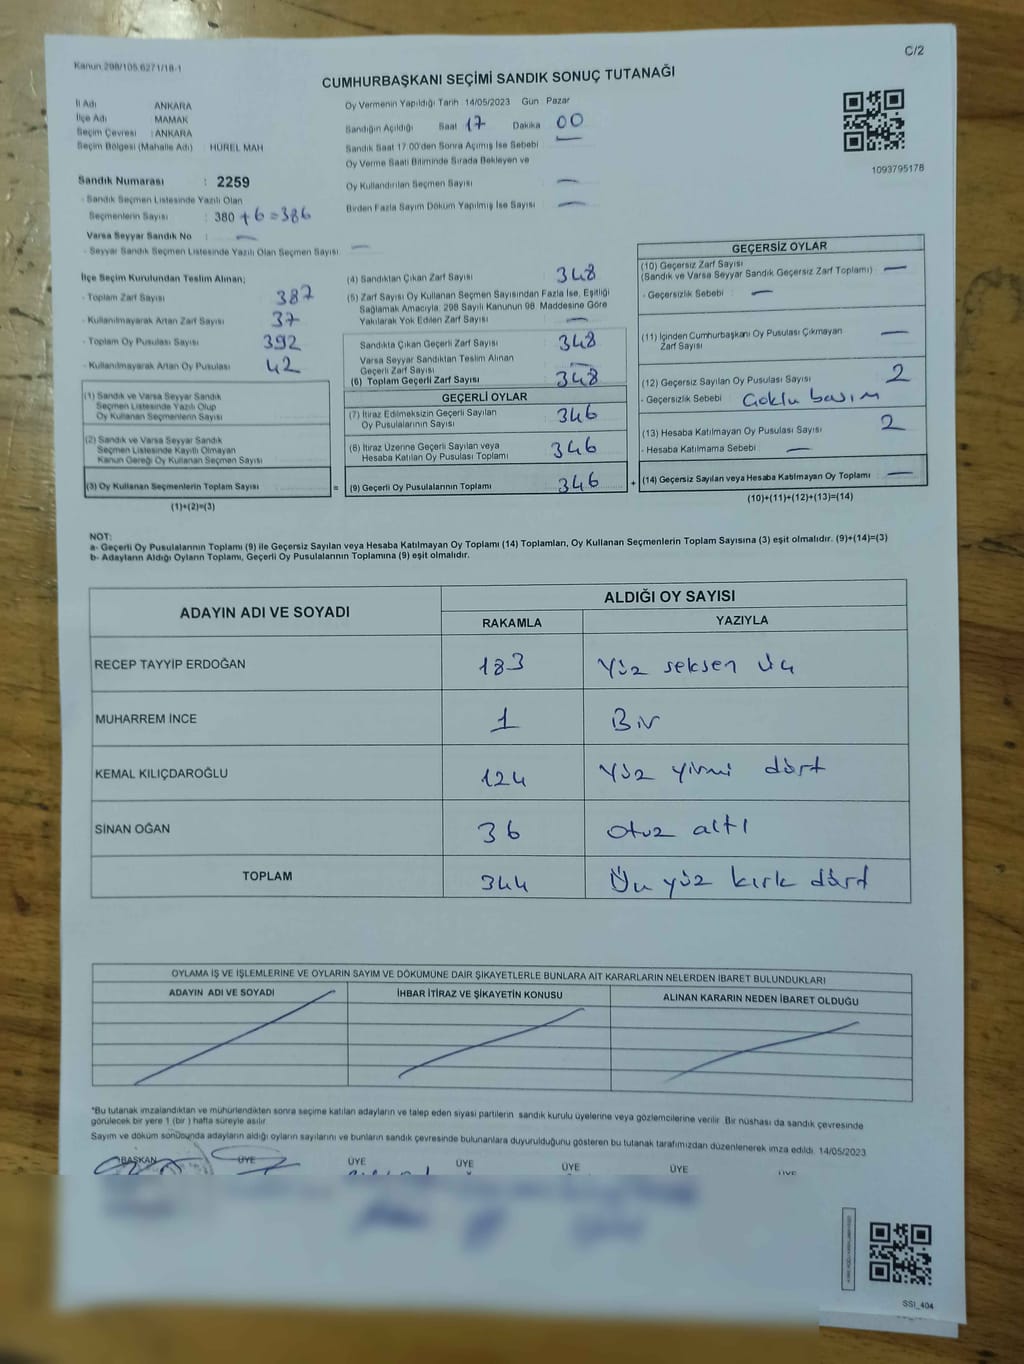 C/2
Kanun 298/105.6271/18-1
CUMHURBAŞKANI SEÇİMİ SANDIK SONUÇ TUTANAĞI
1093795178
İl Adı ANKARA
İlçe Adı MAMAK
Seçim Çevresi : ANKARA
Seçim Bölgesi (Mahalle Adı) HÜREL MAH
Sandık Numarası : 2259
- Sandık Seçmen Listesinde Yazılı Olan
Seçmenlerin Sayısı : 380 +6=386
Varsa Seyyar Sandık No : —
- Seyyar Sandık Seçmen Listesinde Yazılı Olan Seçmen Sayısı —
Oy Vermenin Yapıldığı Tarih 14/05/2023 Gün Pazar
Sandığın Açıldığı Saat 17 Dakika 00
Sandık Saat 17:00'den Sonra Açımış İse Sebebi —
Oy Verme Saati Bitiminde Sırada Bekleyen ve
Oy Kullandırılan Seçmen Sayısı —
Birden Fazla Sayım Döküm Yapılmış İse Sayısı —
İlçe Seçim Kurulundan Teslim Alınan;
- Toplam Zarf Sayısı 387
- Kullanılmayarak Artan Zarf Sayısı 37
- Toplam Oy Pusulası Sayısı 392
- Kullanılmayarak Artan Oy Pusulası 42
(1) Sandık ve Varsa Seyyar Sandık
Seçmen Listesinde Yazılı Olup
Oy Kullanan Seçmenlerin Sayısı
(2) Sandık ve Varsa Seyyar Sandık
Seçmen Listesinde Kayıtlı Olmayan
Kanun Gereği Oy Kullanan Seçmen Sayısı
(3) Oy Kullanan Seçmenlerin Toplam Sayısı =
(1)+(2)=(3)
(4) Sandıktan Çıkan Zarf Sayısı 348
(5) Zarf Sayısı Oy Kullanan Seçmen Sayısından Fazla İse, Eşitliği
Sağlamak Amacıyla, 298 Sayılı Kanunun 98. Maddesine Göre
Yakılarak Yok Edilen Zarf Sayısı —
Sandıkta Çıkan Geçerli Zarf Sayısı 348
Varsa Seyyar Sandıktan Teslim Alınan
Geçerli Zarf Sayısı —
(6) Toplam Geçerli Zarf Sayısı 348
GEÇERLİ OYLAR
(7) İtiraz Edilmeksizin Geçerli Sayılan
Oy Pusulalarının Sayısı 346
(8) İtiraz Üzerine Geçerli Sayılan veya
Hesaba Katılan Oy Pusulası Toplamı 346
(9) Geçerli Oy Pusulalarının Toplamı 346 +
GEÇERSİZ OYLAR
(10) Geçersiz Zarf Sayısı
(Sandık ve Varsa Seyyar Sandık Geçersiz Zarf Toplamı) —
- Geçersizlik Sebebi : —
(11) İçinden Cumhurbaşkanı Oy Pusulası Çıkmayan
Zarf Sayısı —
(12) Geçersiz Sayılan Oy Pusulası Sayısı 2
- Geçersizlik Sebebi Çoklu basım
(13) Hesaba Katılmayan Oy Pusulası Sayısı 2
- Hesaba Katılmama Sebebi —
(14) Geçersiz Sayılan veya Hesaba Katılmayan Oy Toplamı —
(10)+(11)+(12)+(13)=(14)
NOT:
a- Geçerli Oy Pusulalarının Toplamı (9) ile Geçersiz Sayılan veya Hesaba Katılmayan Oy Toplamı (14) Toplamları, Oy Kullanan Seçmenlerin Toplam Sayısına (3) eşit olmalıdır. (9)+(14)=(3)
b- Adayların Aldığı Oyların Toplamı, Geçerli Oy Pusulalarının Toplamına (9) eşit olmalıdır.
ADAYIN ADI VE SOYADI ALDIĞI OY SAYISI
RAKAMLA YAZIYLA
RECEP TAYYİP ERDOĞAN 183 Yüz seksen üç
MUHARREM İNCE 1 Bir
KEMAL KILIÇDAROĞLU 124 Yüz yirmi dört
SİNAN OĞAN 36 otuz altı
TOPLAM 344 Üç yüz kırk dört
OYLAMA İŞ VE İŞLEMLERİNE VE OYLARIN SAYIM VE DÖKÜMÜNE DAİR ŞİKAYETLERLE BUNLARA AİT KARARLARIN NELERDEN İBARET BULUNDUKLARI
ADAYIN ADI VE SOYADI İHBAR İTİRAZ VE ŞİKAYETİN KONUSU ALINAN KARARIN NEDEN İBARET OLDUĞU
*Bu tutanak imzalandıktan ve mühürlendikten sonra seçime katılan adayların ve talep eden siyasi partilerin sandık kurulu üyelerine veya gözlemcilerine verilir. Bir nüshası da sandık çevresinde
görülecek bir yere 1 (bir) hafta süreyle asılır.
Sayım ve döküm sonucunda adayların aldığı oyların sayılarını ve bunların sandık çevresinde bulunanlara duyurulduğunu gösteren bu tutanak tarafımızdan düzenlenerek imza edildi. 14/05/2023
BAŞKAN ÜYE ÜYE ÜYE ÜYE ÜYE ÜYE
SSI_404